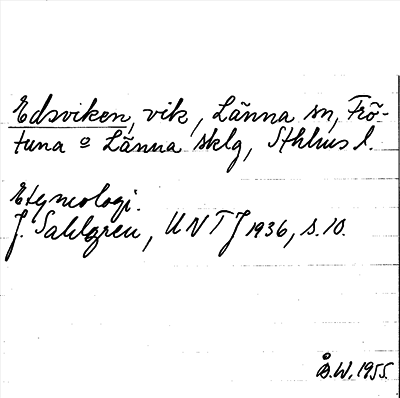 Edsviken, vik, Länna sn, Frö-
tuna o Länna sklg, Sthlms l.
Etymologi.
J. Sahlgren, UNTJ 1936, s. 10.
Å.W. 1955.